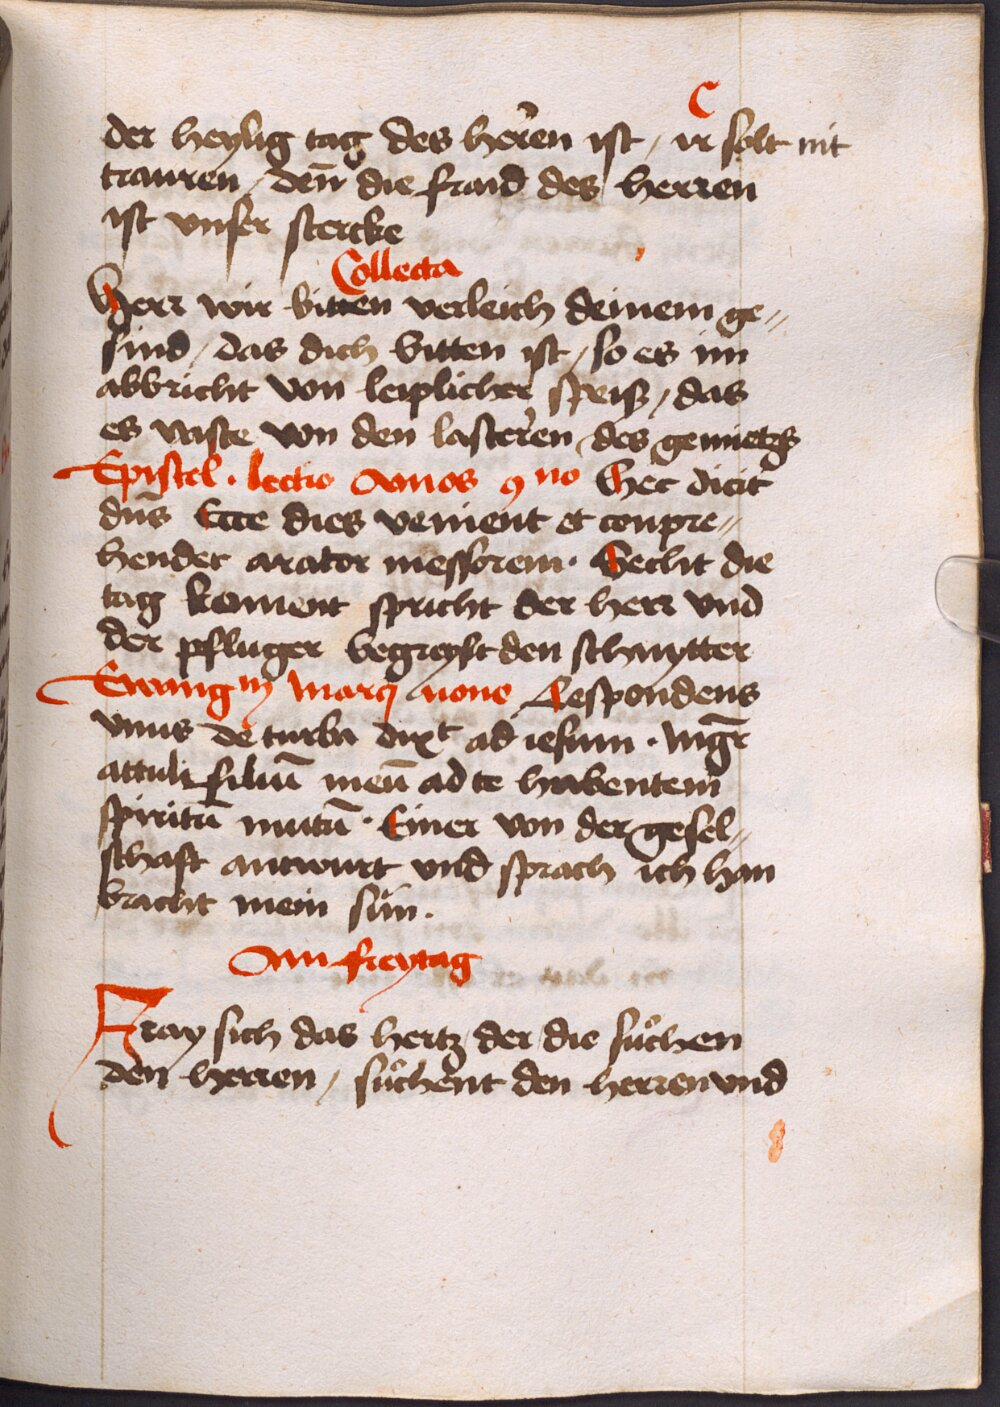 C
der heylig tag des herren ist / ir solt nit
trauren / denn die fraid des herren
ist unser stercke
Collecta
Herr wir bitten verleich deinem ge//
sind / das dich bitten ist / so es im
abbricht von leiplicher speiß / das
es vaste von den lasteren des gemietz
Epistel · lectio Amos 9no Hec dicit
dns̄ Ecce dies venient et conpre//
hendet arator messorem · Secht die
tag koment spricht der herr vnd
der pfluger begreyft den schnytter
Ewang m Marci nono Respondens
vnus de turba dixt ad iesum · Mgr̄
attuli filiū meū ad te habentem
spiritū mutū · Einer von der gesel//
schaft antwurt vnd sprach ich han
bracht mein sůn ·
Am freytag
Fray sich das hertz der die sůchen
den herren / sůchent den herren vnd